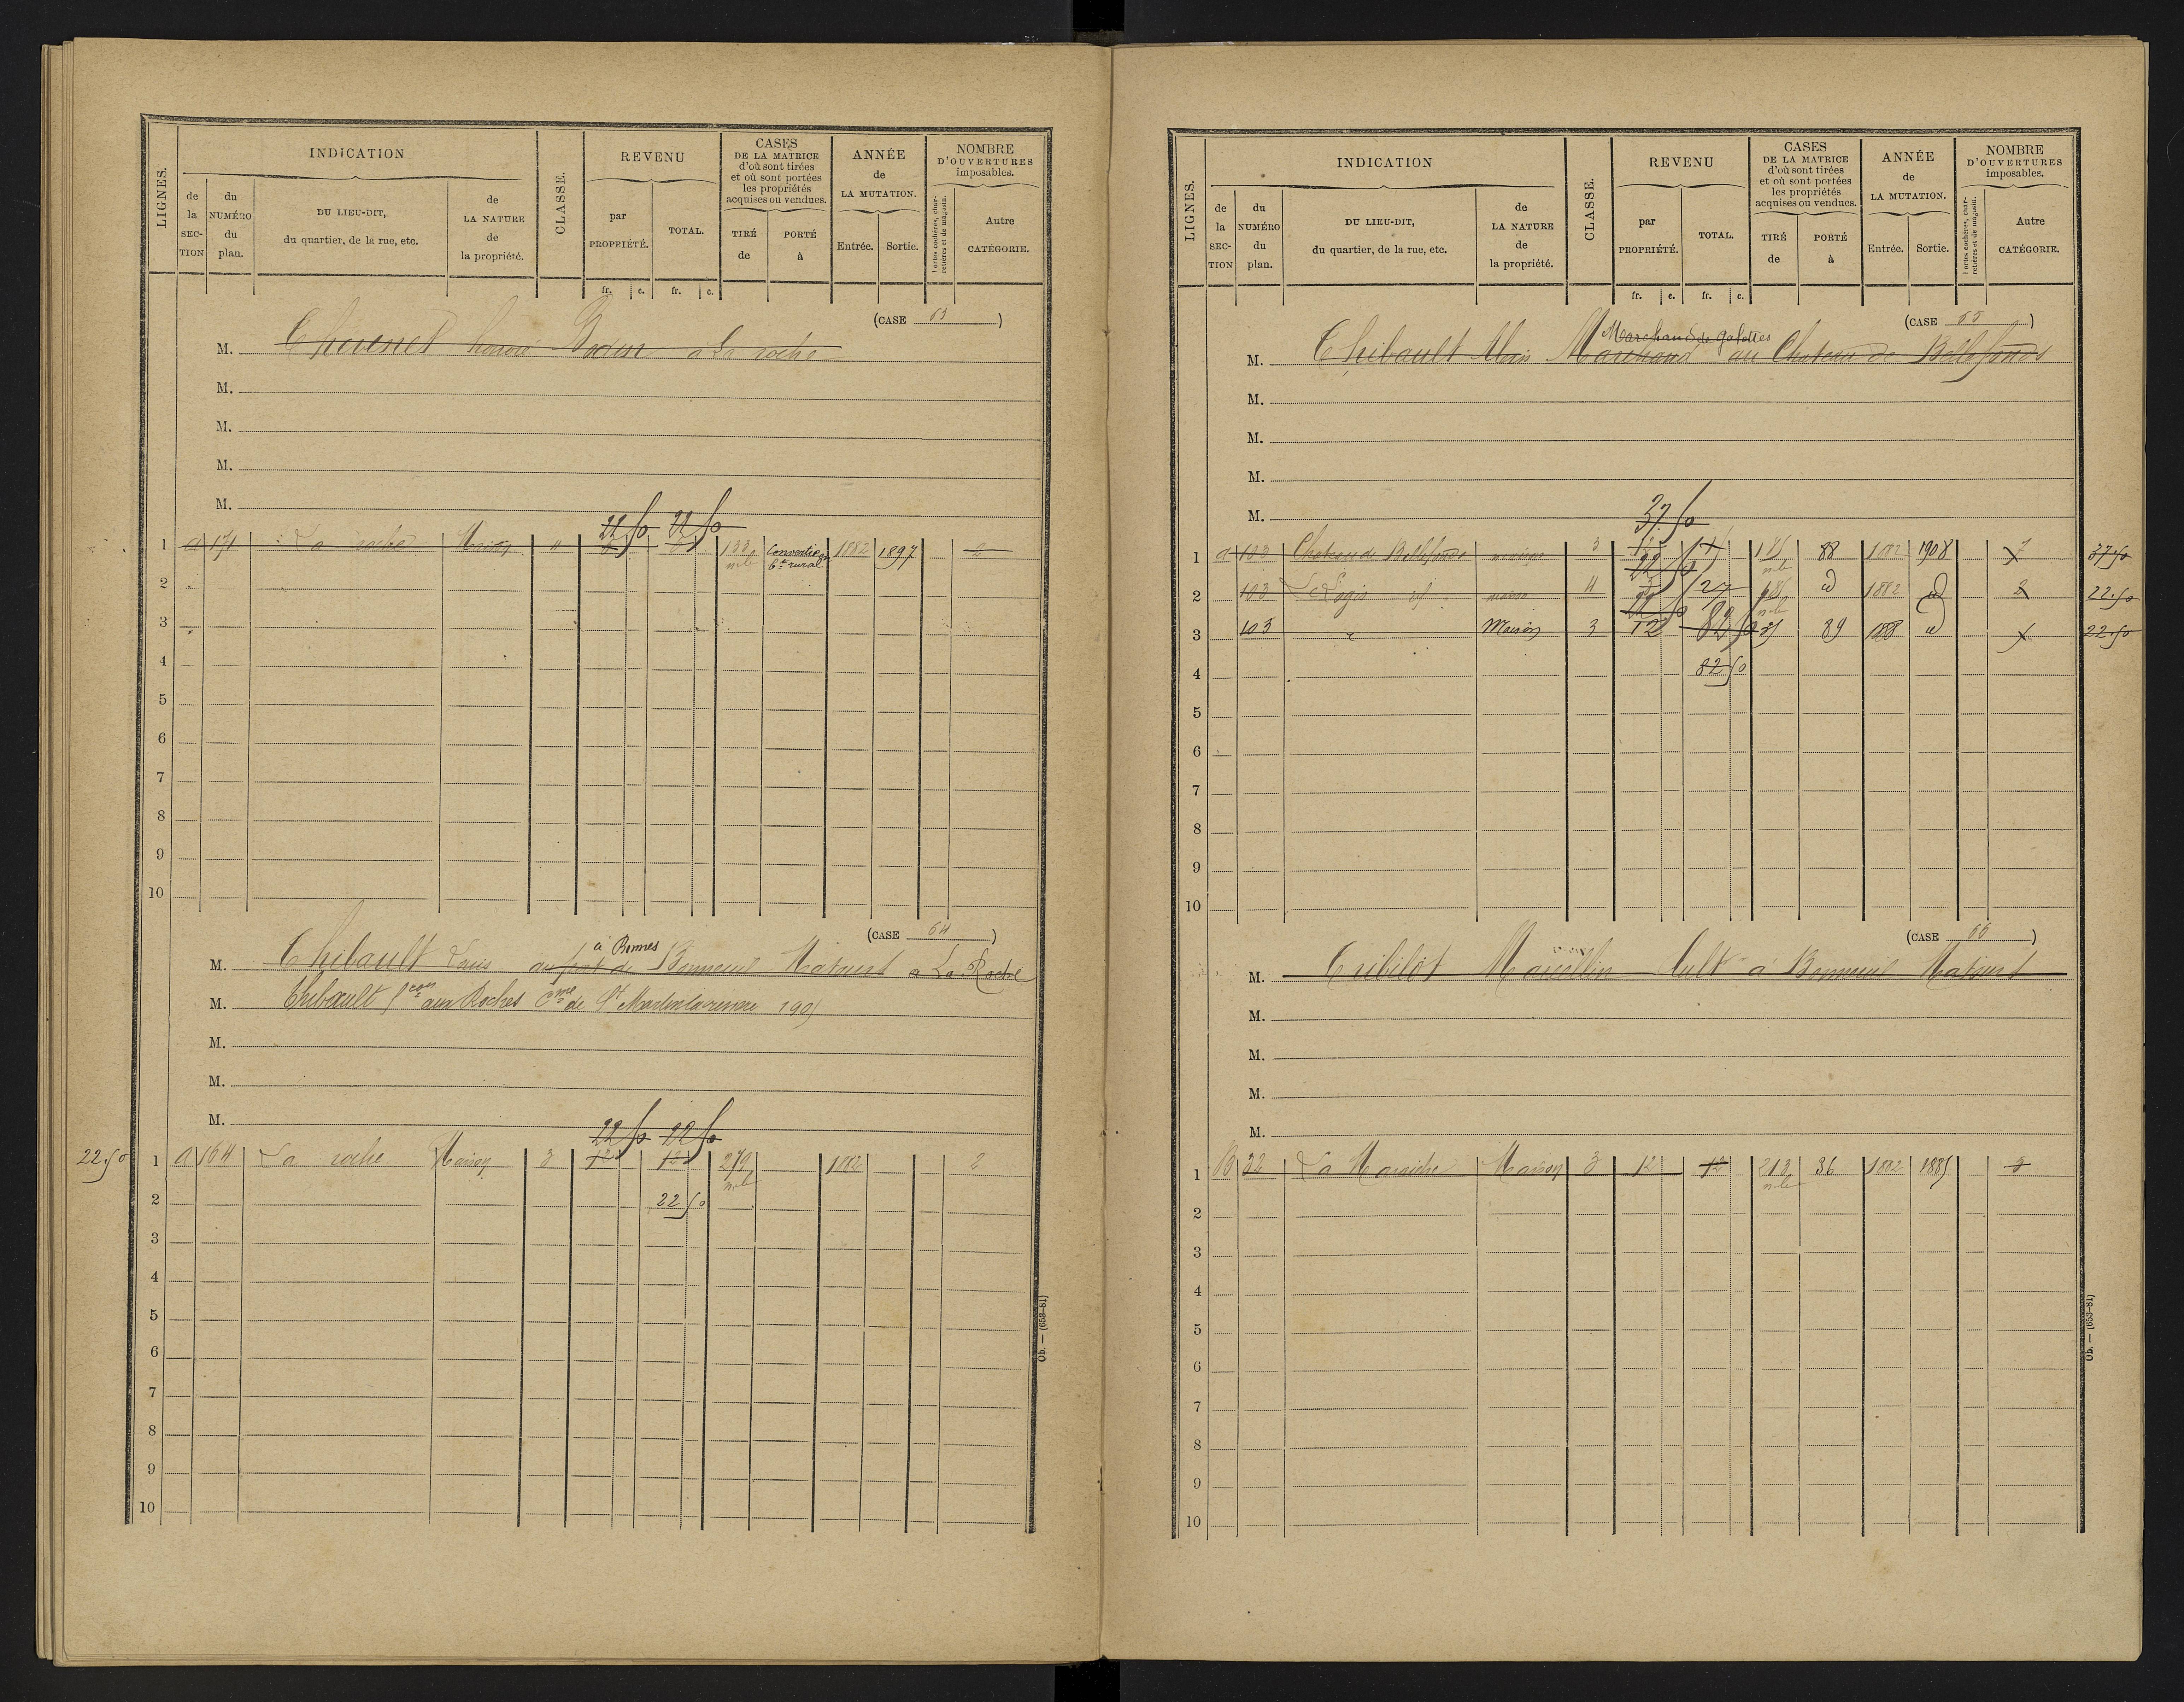 LIGNES.
INDICATION
de la SECTION
du NUMÉRO du plan.
DU LIEU-DIT, du quartier, de la rue, etc.
de LA NATURE de la propriété.
CLASSE.
REVENU
par PROPRIÉTÉ.
TOTAL.
fr. c. fr. c.
CASES DE LA MATRICE d'où sont tirées et où sont portées les propriétés acquises ou vendues.
TIRÉ de
PORTÉ à
ANNÉE de LA MUTATION.
Entrée. Sortie.
NOMBRE D'OUVERTURES imposables.
Portes cochères, charretières et de magasin.
Autre CATÉGORIE.
(CASE 63)
M. à La roche
M.
M.
M.
M.
22 50 22 50
1 a 171 La roche Maison 133 Convertie en Bt rural 1882 1897 2
2
3
4
5
6
7
8
9
10
(CASE 64)
à Bonnes
M. Thibault Louis au port de Bonneuil Matours à La Roche
M. Thibault aux Roches Cme de St Martin la rivière 1905
M.
M.
M.
22 50 22 50
22.50 1 a 164 La roche Maison 3 12 12 279 1882 2
2 22 50
3
4
5
6
7
8
9
10
Ob. — (653-81)
LIGNES.
INDICATION
de la SECTION
du NUMÉRO du plan.
DU LIEU-DIT, du quartier, de la rue, etc.
de LA NATURE de la propriété.
CLASSE.
REVENU
par PROPRIÉTÉ.
TOTAL.
fr. c. fr. c.
CASES DE LA MATRICE d'où sont tirées et où sont portées les propriétés acquises ou vendues.
TIRÉ de
PORTÉ à
ANNÉE de LA MUTATION.
Entrée. Sortie.
NOMBRE D'OUVERTURES imposables.
Portes cochères, charretières et de magasin.
Autre CATÉGORIE.
(CASE 65)
Marchand de galettes
M. Thibault Alexis Marchand au Chateau de Bellefonds
M.
M.
M.
M.
37.50
1 a 103 Chateau de Bellefonds maison 3 185 88 1882 1908 7 37.50
22 50
2 103 Le Logis id maison 4 27 185 id 1882 id 2 22.50
3 103 Maison 3 12 82 50 89 188 id 22.50
4 82 50
5
6
7
8
9
10
(CASE 66)
M. Tribilot Marcellin Cult à Bonneuil Matours
M.
M.
M.
M.
1 B 32 La Maison 3 12 12 213 36 1882 1885
2
3
4
5
6
7
8
9
10
Ob. — (653-81)